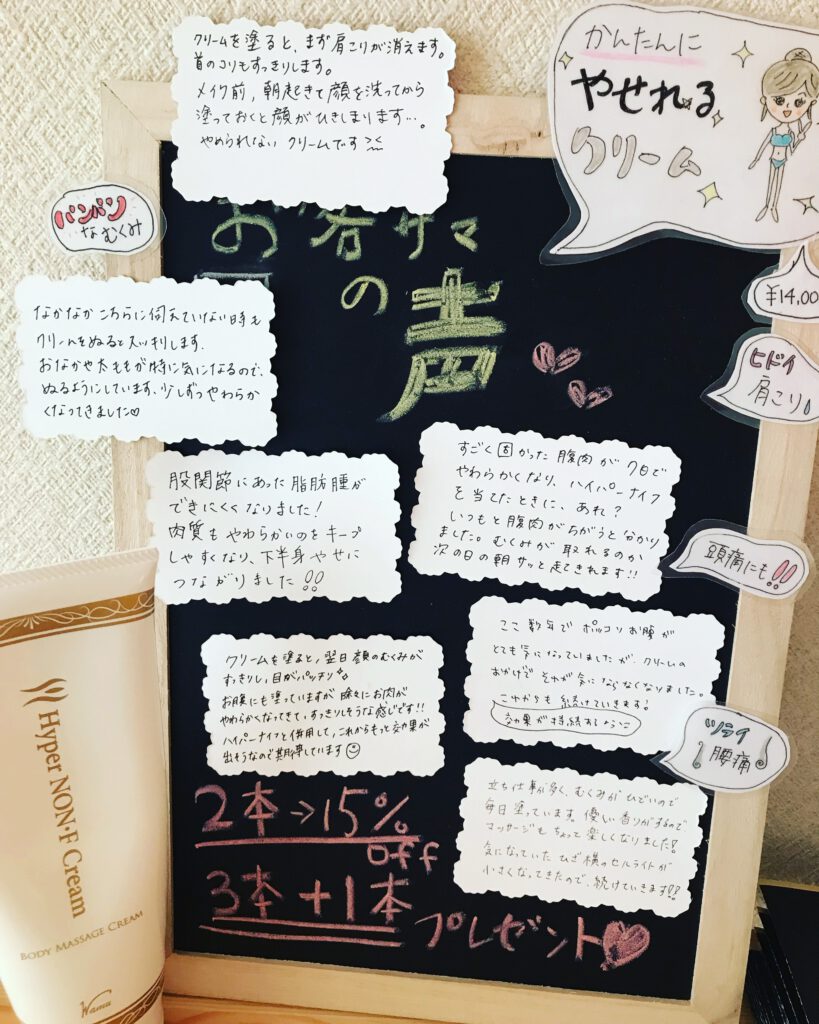 クリームを塗ると、まず肩こりが消えます。
首のコリもすっきりします。
メイク前、朝起きて顔を洗ってから
塗っておくと顔がひきしまります…。
やめられない クリームです
かんたんに
やせれる
クリーム
パンパン
なむくみ
お客サマ
の
声
¥14,00
ヒドイ
肩こり
なかなか こちらに伺えていない時も
クリームをぬるとスッキリします。
おなかや太ももが特に気になるので、
ぬるようにしています、少しずつやわらか
くなってきました♡
股関節にあった脂肪腫が
できにくくなりました！
肉質もやわらかいのをキープ
しやすくなり、下半身やせに
つながりました!!
すごく固かった腹肉が7日で
やわらかくなり、ハイパーナイフ
を当てたときに、あれ？
いつもと腹肉がちがうと分かり
ました。むくみが取れるのか
次の日の朝サッと起きれます!!
頭痛にも!!
クリームを塗ると、翌日顔のむくみが
すっきりし、目がパッチリ
お腹にも塗っていますが徐々にお肉が
やわらかくなってきて、すっきりしそうな感じです!!
ハイパーナイフと併用して、これからもっと効果が
出そうなので期待しています☺
ここ数年でポッコリお腹が
とても気になっていましたが、クリームの
おかげでそれが気にならなくなりました。
これからも続けていきます!
効果が持続するよう
ツライ
腰痛
立ち仕事が多く、むくみがひどいので
毎日塗っています。優しい香りがするので
マッサージもちょっと楽しくなりました!
気になっていたひざ横のセルライトが
小さくなってきたので、続けていきます!!
2本→15%
OFF
3本+1本
プレゼント♥
Hyper NON・F Cream
BODY MASSAGE CREAM
Wamu